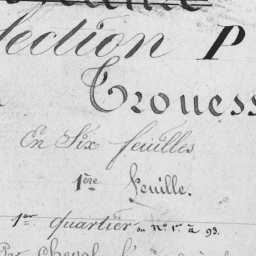 Section P
Trouess
En Six feuilles
1ère feuille.
1er quartier du N° 1er à 93.